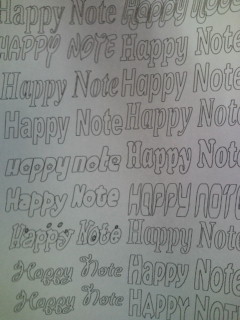 Happy Note Happy Note
HAPPY NOTE Happy Not
Happy Note Happy Note
Happy Note Happy Note
Happy note Happy Not
Happy Note HAPPY NOT
Happy Note Happy Not
Happy Note Happy Not
Happy Note HAPPY NOT